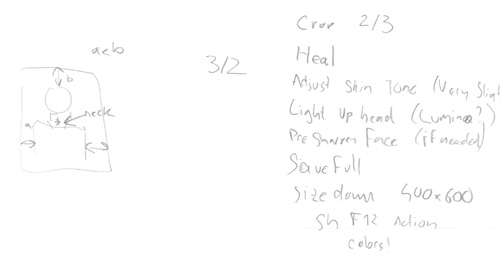 a<b
b
neck
a
3/2
Crop 2/3
Heal
Adjust Skin Tone (Very Slight
Light Up head (Lumin
Pre Sharpen Face (if needed)
Save Full
Size down 400x600
Sh F12 Action
Colors!